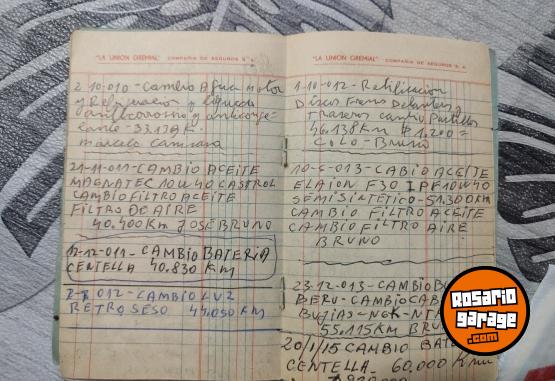 "LA UNION GREMIAL" COMPAÑIA DE SEGUROS S. A.
2-10-010-Cambio Agua motor
y Refrigeracion y liquido
anticorrosivo y anticonge-
lante-33.139K.
marcelo Camisasa
21-11-011-CAMBIO ACEITE
MAGNATEC 10W40 CASTROL
CAMBIO FILTRO ACEITE
FILTRO DE AIRE
40.400Km JOSÉ BRUNO
12-12-011-CAMBIO BATERIA
CENTELLA 40.830 Km
012-CAMBIO LUZ
RETROSESO 41.050 KM
"LA UNION GREMIAL" COMPAÑIA DE SEGUROS S. A.
1-10-012-Retificacion
Discos Frens Delanteros y
Traseros cambio Pastillas
46.138Km $1.200=
COLO-BRUNO
10-6-013-CABIO ACEITE
ELAION F30 YPF10W40
SEMISINTÉTICO-51.300Km
CAMBIO FILTRO ACEITE
CAMBIO FILTRO AIRE
BRUNO
23-12-013-CAMBIO BU
BERU-CAMBIO CAB
BUJIAS-NGK-NTK
55.115KM BRU
20/1/15 CAMBIO BAT
CENTELLA- 60,000 Km
Rosario
garage
.com